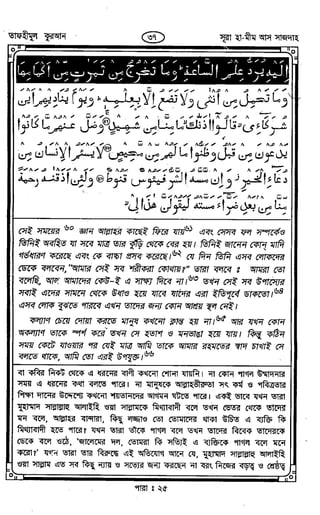 তাফহীমুল কুরআন
৩৭
সূরা হা-মীম আস সাজদাহ
إِلَيْهِ يُرَدُّ عِلْمُ السَّاعَةِ وَمَا تَخْرُجُ مِنْ ثَمَرَٰتٍ مِنْ أَكْمَامِهَا
وَمَا تَحْمِلُ مِنْ أُنْثَىٰ وَلَا تَضَعُ إِلَّا بِعِلْمِهِ وَيَوْمَ يُنَادِيهِمْ أَيْنَ
شُرَكَائِي قَالُوا آذَنَّاكَ مَا مِنَّا مِنْ شَهِيدٍ وَضَلَّ عَنْهُمْ مَا كَانُوا
يَدْعُونَ مِنْ قَبْلُ وَظَنُّوا مَا لَهُمْ مِنْ مَحِيصٍ لَا يَسْأَمُ الْإِنْسَانُ مِنْ
دُعَاءِ الْخَيْرِ وَإِنْ مَسَّهُ الشَّرُّ فَيَئُوسٌ قَنُوطٌ وَلَئِنْ أَذَقْنَاهُ رَحْمَةً
مِنَّا مِنْ بَعْدِ ضَرَّاءَ مَسَّتْهُ لَيَقُولَنَّ هَٰذَا لِي
সেই সময়ের জ্ঞান আল্লাহর কাছেই ফিরে যায় এবং সেসব ফল সম্পর্কেও
তিনিই অবহিত যা সবে মাত্র তার কুঁড়ি থেকে বের হয়। তিনিই জানেন কোন্ মাদি
গর্ভধারণ করেছে এবং কে বাচ্চা প্রসব করেছে। যে দিন তিনি এসব লোকদের
ডেকে বলবেন, "আমার সেই সব শরীকরা কোথায়?" তারা বলবে : আমরা তো
বলেছি, আজ আমাদের কেউ-ই এ সাক্ষ্য দিবে না। তখন সেই সব উপাস্যের
সবাই এদের সামনে থেকে উধাও হয়ে যাবে যাদের এরা ইতিপূর্বে ডাকতো।
এসব লোক বুঝতে পারবে এখন তাদের জন্য কোন আশ্রয় স্থল নেই।
কল্যাণ চেয়ে দোয়া করতে মানুষ কখনো ক্লান্ত হয় না। আর যখন কোন
অকল্যাণ তাকে স্পর্শ করে তখন সে হতাশ ও মনভাঙ্গা হয়ে যায়। কিন্তু কঠিন
সময় কেটে যাওয়ার পর যেই মাত্র আমি তাকে আমার রহমতের স্বাদ চাখাই সে
বলতে থাকে, আমি তো এরই উপযুক্ত।
বা কবির নিকট থেকে এ ধরনের বাণী কখনো শোনা যায়নি। না কোন পাগল উন্মাদনার
সময় এ ধরনের কথা বলতে পারে। না মানুষকে আল্লাহভীরুতা সৎ কর্ম ও পবিত্রতার
শিক্ষা দানের উদ্দেশ্যে কখনো শয়তানদের আগমন ঘটতে পারে।
মন বলে, আল্লাহর বান্দারা, কিছু লজ্জাও তো তোমাদের থাকা উচিত এ ব্যক্তি কি
মিথ্যাবাদী হতে পারে? যখন তারা তাঁকে পাগল বলে তখন তাদের বিবেক তাদেরকে
ডেকে বলে ওঠে, 'জালেমের দল, তোমরা কি সত্যিই এ ব্যক্তিকে পাগল বলে মনে
করো?' যখন তারা তার বিরুদ্ধে এই অভিযোগ আনে যে, মুহাম্মাদ সাল্লাল্লাহু আলাইহি
ওয়া সাল্লাম এত সব কিছু ন্যায় ও সত্যের জন্য করছেন না বরং নিজের বড়ত্ব ও শ্রেষ্ঠত্ব
পারা : ২৫